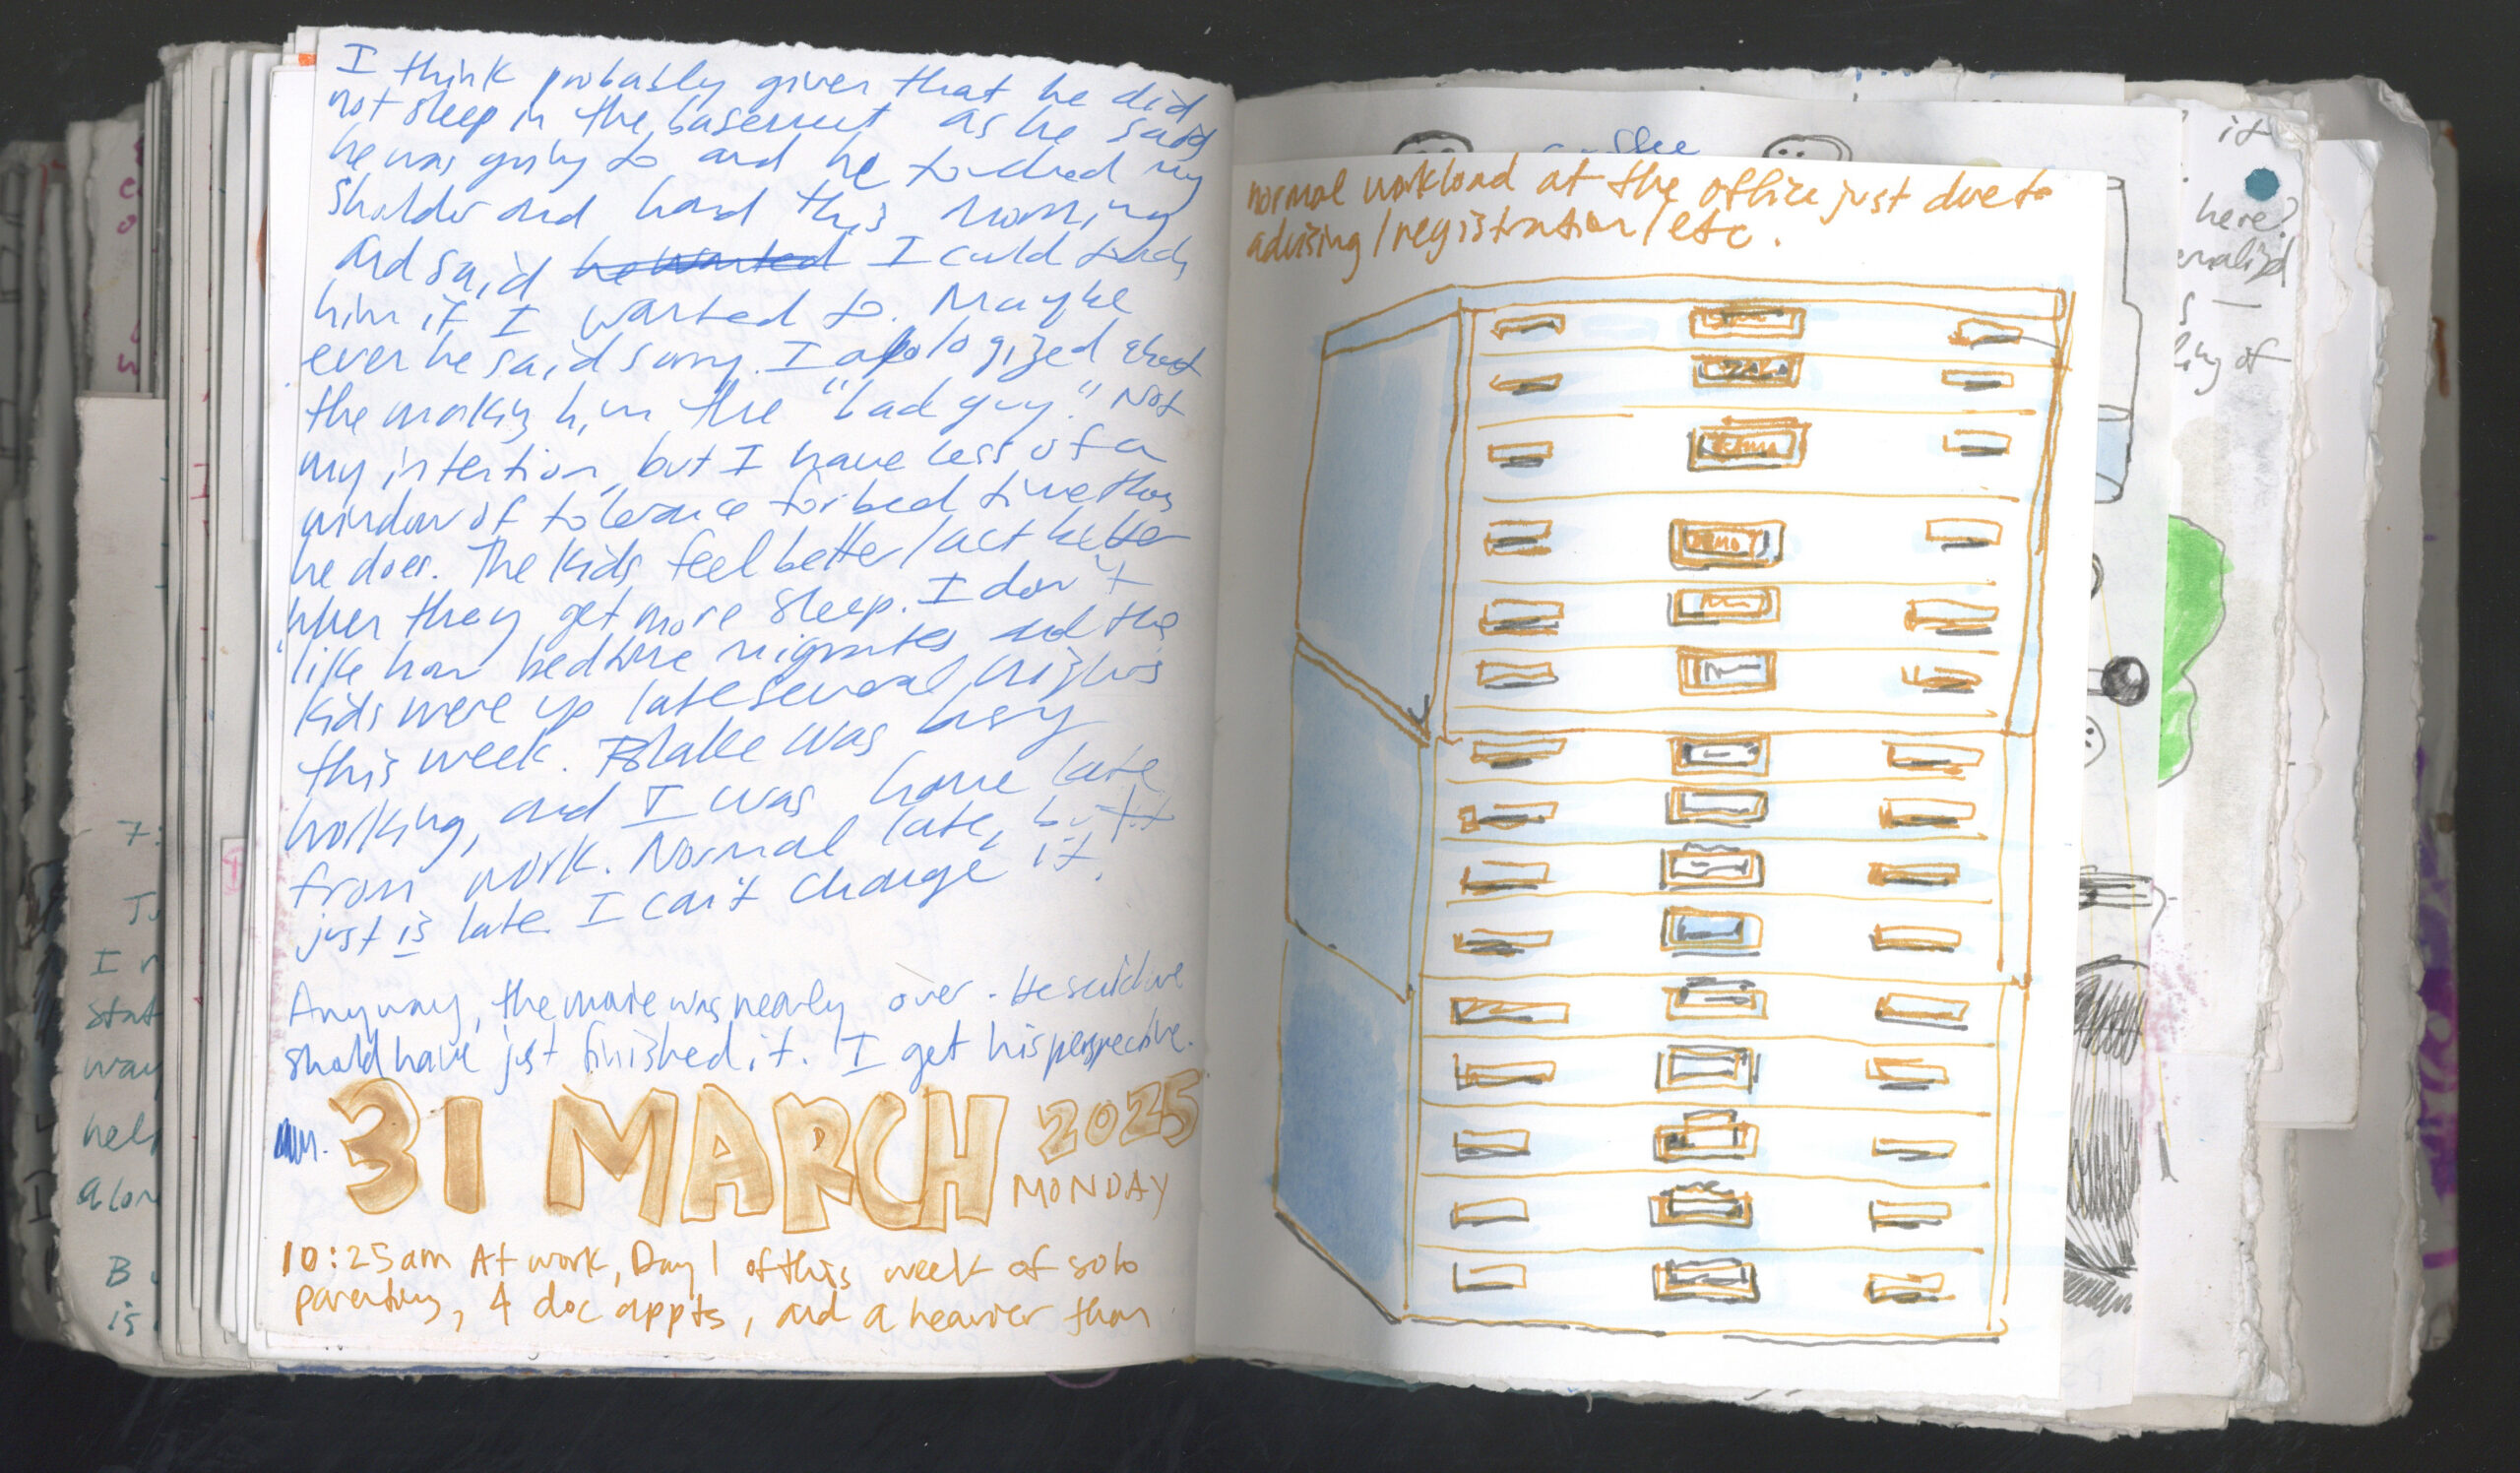 I think probably given that he did
not sleep in the basement as he said
he was going to and he touched my
sholder and hand this morning
and said he wanted I could touch
him if I wanted to. Maybe
ever he said sorry. I apologized about
the making him the "bad guy." Not
my intention, but I have less of a
window of tolerance for bed time than
he does. The kids feel better/act better
when they get more sleep. I don't
like how bedtime migrates and the
kids were up late several nights
this week. Blake was busy
working, and I was home late
from work. Normal late, but it
just is late. I can't change it.
Anyway, the movie was nearly over. He said we
should have just finished it. I get his perspective.
31 MARCH 2025
MONDAY
10:25am At work, Day 1 of this week of solo
parenting, 4 doc appts, and a heavier than
normal workload at the office just due to
advising/registration/etc.
it
here?
ling of
7:
I
stat
way
help
alon
B
is